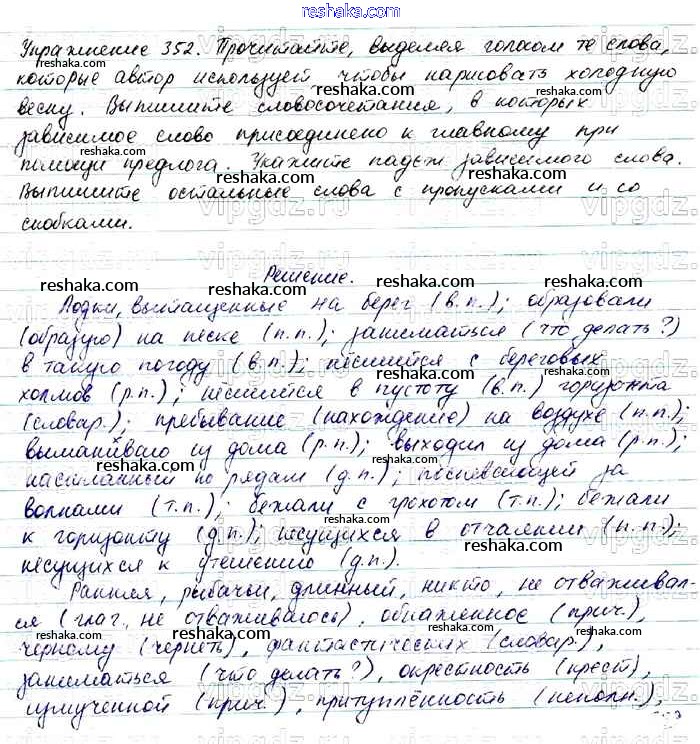 reshaka.com
Упражнение 352. Прочитайте, выделяя голосом те слова,
которые автор использует чтобы нарисовать холодную
весну. Выпишите словосочетания, в которых
зависимое слово присоединено к главному при
помощи предлога. Укажите падеж зависимого слова.
Выпишите остальные слова с пропусками и со
скобками.
Решение.
Лодки, вытащенные на берег (в.п.); образовали
(образую) на песке (п.п.); заниматься (что делать?)
в такую погоду (в.п.); несшийся с береговых
холмов (р.п.); несшийся в пустоту (в.п.) горизонта
(словар.); пребывание (нахождение) на воздухе (п.п.);
выманивало из дома (р.п.); выходил из дома (р.п.);
настиланный по рядам (д.п.); поспевающей за
волнами (т.п.); бежали с грохотом (т.п.); бежали
к горизонту (д.п.); несущихся в отчаянии (п.п.);
несущихся к утешению (д.п.).
Ранняя, рыбачьи, длинный, никто, не отваживал-
ся (глаг., не отваживалось), обнаженное (прич.),
черному (чернеть), фантастических (словар.),
заниматься (что делать?), окрестность (крест),
измученной (прич.), притуплённость (неполн.),